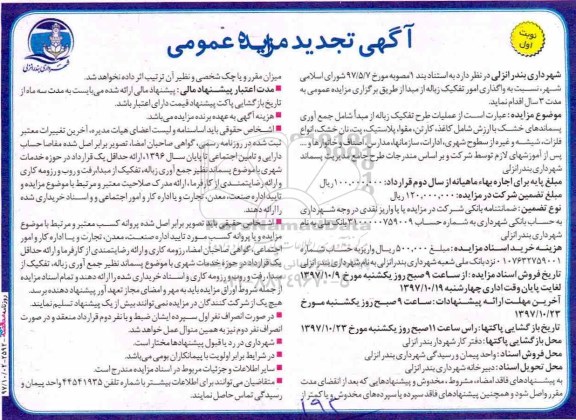 آگهی تجدید مزایده عمومی
نوبت اول
شهرداری بندرانزلی
شهرداری بندر انزلی در نظر دارد به استناد بند ۱ مصوبه مورخ ۹۷/۵/۷ شورای اسلامی
شهر، نسبت به واگذاری امور تفکیک زباله از مبدا از طریق برگزاری مزایده عمومی به
مدت ۳ سال اقدام نماید.
موضوع مزایده: عبارت است از عملیات طرح تفکیک زباله از مبدأ شامل جمع آوری
پسماندهای خشک با ارزش شامل کاغذ، کارتن، مقوا، پلاستیک، پت، نان خشک، انواع
فلزات، شیشه و غیره از سطوح شهری، ادارات، سازمانها، مدارس
پس از آموزشهای لازم توسط شرکت و بر اساس مندرجات طرح پسماند
شهرداری بندرانزلی
مبلغ پایه برای اجاره بهاء ماهیانه از سال دوم قرارداد: ۱۰۰,۰۰۰,۰۰۰ ریال
مبلغ تضمین شرکت در مزایده: ۱۲۰,۰۰۰,۰۰۰ ریال
نوع تضمین: ضمانتنامه بانکی شرکت در مزایده یا واریز نقدی در وجه شهرداری
به حساب بانکی شهرداری به شماره حساب
شهرداری بندر انزلی
هزینه خرید اسناد مزایده: مبلغ ۵۰۰,۰۰۰ ریال واریز به حساب شماره
۰۱۰۷۶۳۲۷۵۹۰۰۱ نزد بانک ملی شعبه شهرداری بندرانزلی به نام شهرداری بندر انزلی
تاریخ فروش اسناد مزایده: از ساعت ۹ صبح روز یکشنبه مورخ ۱۳۹۷/۱۰/۹
لغایت پایان وقت اداری چهارشنبه ۱۳۹۷/۱۰/۱۹
آخرین مهلت ارائه پیشنهادات: ساعت ۹ صبح روز یکشنبه مورخ
۱۳۹۷/۱۰/۲۳
تاریخ بازگشایی پاکتها: راس ساعت ۱۱ صبح روز یکشنبه مورخ ۱۳۹۷/۱۰/۲۳
محل بازگشایی پاکتها: دفتر کار شهردار بندر انزلی
محل فروش اسناد: واحد پیمان و رسیدگی شهرداری بندر انزلی
محل تحویل اسناد: دبیرخانه شهرداری بندر انزلی
به پیشنهادهای فاقد امضاء، مشروط، مخدوش و پیشنهادهایی که بعد از انقضای مدت
مقرر واصل شود و همچنین پیشنهادهای فاقد سپرده یا سپرده‌های مخدوش و یا کمتر از
میزان مقرر و یا چک شخصی و نظیر آن ترتیب اثر داده نخواهد شد.
مدت اعتبار پیشنهاد مالی: پیشنهاد مالی ارائه شده می‌بایست به مدت سه ماه از
تاریخ بازگشایی پاکت پیشنهاد قیمت دارای اعتبار باشد.
هزینه آگهی به عهده برنده مزایده می‌باشد.
اشخاص حقوقی باید اساسنامه و لیست اعضای هیات مدیره، آخرین تغییرات معتبر
ثبت شده در روزنامه رسمی، گواهی صاحبان امضا، تصویر برابر اصل شده مفاصا حساب
دارایی و تامین اجتماعی تا پایان سال ۱۳۹۶، ارائه حداقل یک قرارداد در حوزه خدمات
شهری با موضوع پسماند نظیر جمع آوری زباله، تفکیک از مبدا، رفت و روب و رزومه کاری
و ارائه رضایتمندی از کارفرما، ارائه مدرک صلاحیت معتبر و مرتبط با موضوع مزایده و
تاییدیه اداره صنعت، معدن، تجارت و یا اداره کار و امور اجتماعی و و اسناد خریداری شده
را ارائه دهند.
اشخاص حقیقی تصویر برابر اصل شده پروانه کسب معتبر و مرتبط با موضوع
مزایده و یا پروانه کسب مورد تایید اداره صنعت، معدن، تجارت و یا اداره کار و امور
اجتماعی، گواهی صاحبان امضا، رزومه کاری و ارائه رضایتمندی از کارفرما و ارائه حداقل
یک قرارداد در حوزه خدمات شهری با موضوع پسماند نظیر جمع آوری زباله، تفکیک از
مبدا، رفت و روب و رزومه کاری و اسناد خریداری شده را ارائه دهند و تمام اسناد مزایده
از جمله شروط اوراق مزایده باید به مهر و امضای مجاز تعهد آور پیشنهاد دهنده برسد.
هیچ یک از شرکت کنندگان در مزایده نمی‌توانند بیش از یک پیشنهاد تسلیم نمایند.
در صورت انصراف نفر اول سپرده ایشان ضبط و با نفر دوم قرارداد منعقد و در صورت
انصراف نفر دوم نیز به همین منوال عمل خواهد شد.
شهرداری در رد یا قبول پیشنهادها مختار است.
در شرایط برابر اولویت با پیمانکاران بومی می‌باشد.
سایر اطلاعات و جزئیات مربوط در اسناد مزایده مندرج است.
متقاضیان می‌توانند برای اطلاعات بیشتر با شماره تلفن ۴۴۵۴۱۹۳۵ واحد پیمان و
رسیدگی تماس حاصل نمایند.